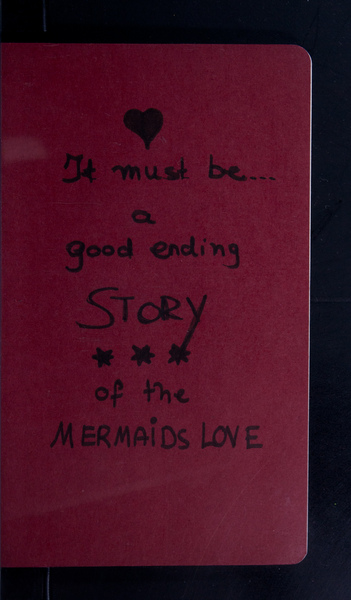 It must be...
a
good ending
STORY
of the
MERMAiDS LOVE